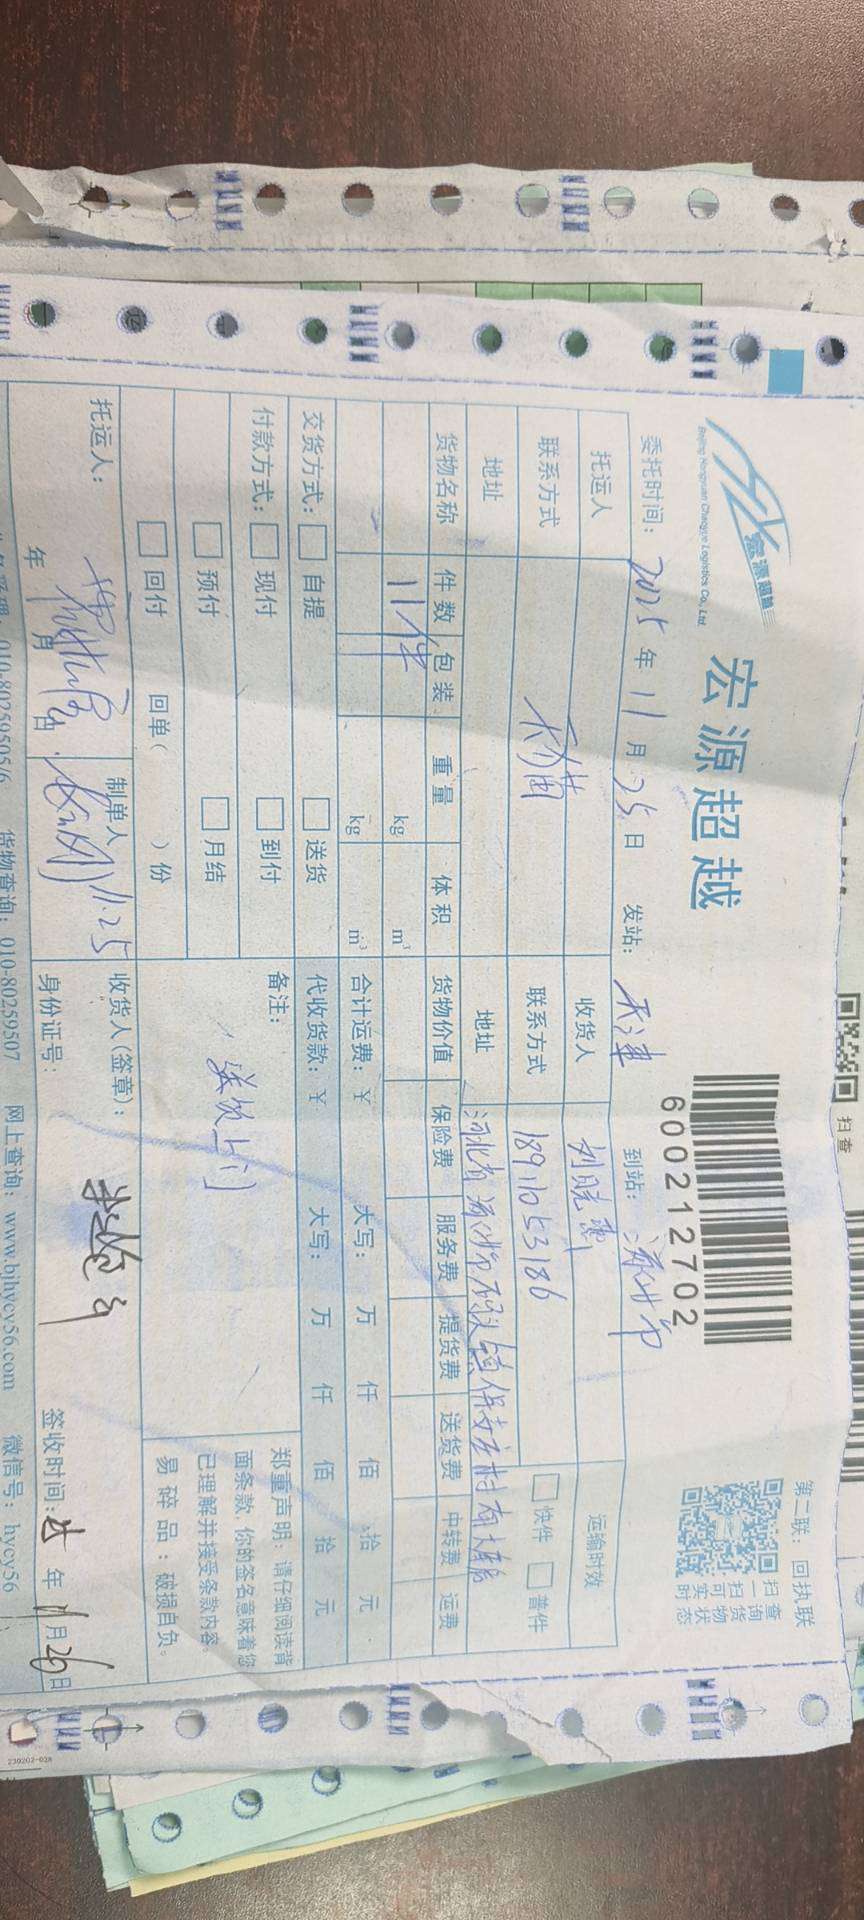 宏源超越
Beijing Hongyuan Chaoyue Logistics Co., Ltd
宏源超越
600212702
第二联：回执联
扫一扫可查询货物实时状态
扫查
委托时间：2025年11月25日 发站：天津 到站：涿州市
托运人 收货人 刘晓鹏 运输时效
联系方式 天猫 联系方式 1891053186 快件 普件
地址 地址 河北省涿州市码头镇
货物名称 件数 包装 重量 体积 货物价值 保险费 服务费 提货费 送货费 中转费 运费
11件 kg m³
kg m³ 合计运费：¥ 大写： 万 仟 佰 拾 元
交货方式： 自提 送货 代收货款：¥ 大写： 万 仟 佰 拾 元
付款方式： 现付 到付 备注：
预付 月结 送货上门
回付 回单（ ）份
郑重声明：请仔细阅读背面条款，你的签名意味着您已理解并接受条款内容。
易碎品：破损自负。
托运人： 制单人 11.25 收货人(签章)：
年 月 日 身份证号： 签收时间： 年11月26日
010-80259505/6 货物查询：010-80259507 网上查询：www.bjhycy56.com 微信号：hycy56
230202-028